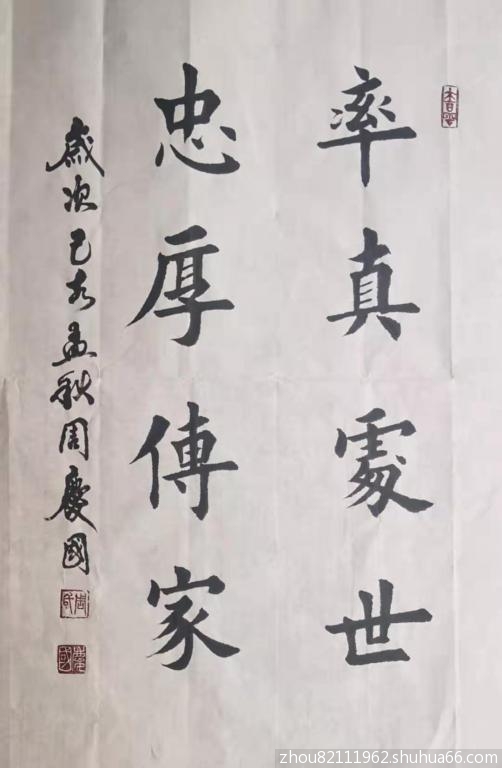 率真處世
忠厚傳家
歲次己亥孟秋周慶國
周氏
慶國
zhou82111962.shuhua66.com